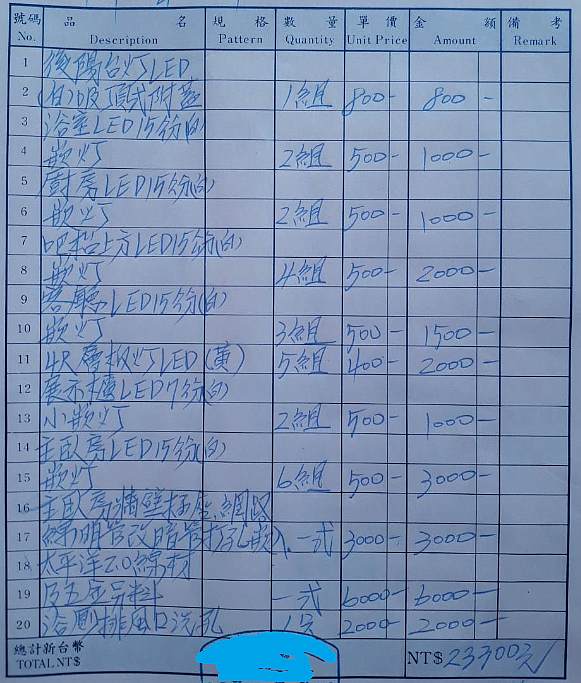 號碼 品 名 規 格 數 量 單 價 金 額 備 考
No. Description Pattern Quantity Unit Price Amount Remark
1 後陽台灯LED
2 (白)吸頂式附蓋 1組 800- 800-
3 浴室LED15分(白)
4 嵌灯 2組 500- 1000-
5 廚房LED15分(白)
6 嵌灯 2組 500- 1000-
7 吧枱上方LED15分(白)
8 嵌灯 4組 500- 2000-
9 客廳LED15分(白)
10 嵌灯 3組 500- 1500-
11 4尺層板灯LED(黃) 5組 400- 2000-
12 展示櫃LED7分(白)
13 小嵌灯 2組 500- 1000-
14 主臥房LED15分(白)
15 嵌灯 6組 500- 3000-
16 主臥房牆壁插座.網路
17 線明管改暗管打孔嵌入. 一式 3000- 3000-
18 太平洋2.0線材
19 及五金另料 一式 6000- 6000-
20 浴廁排風口洗孔 2000- 2000-
總計新台幣
TOTAL NT$ NT$ 23300元